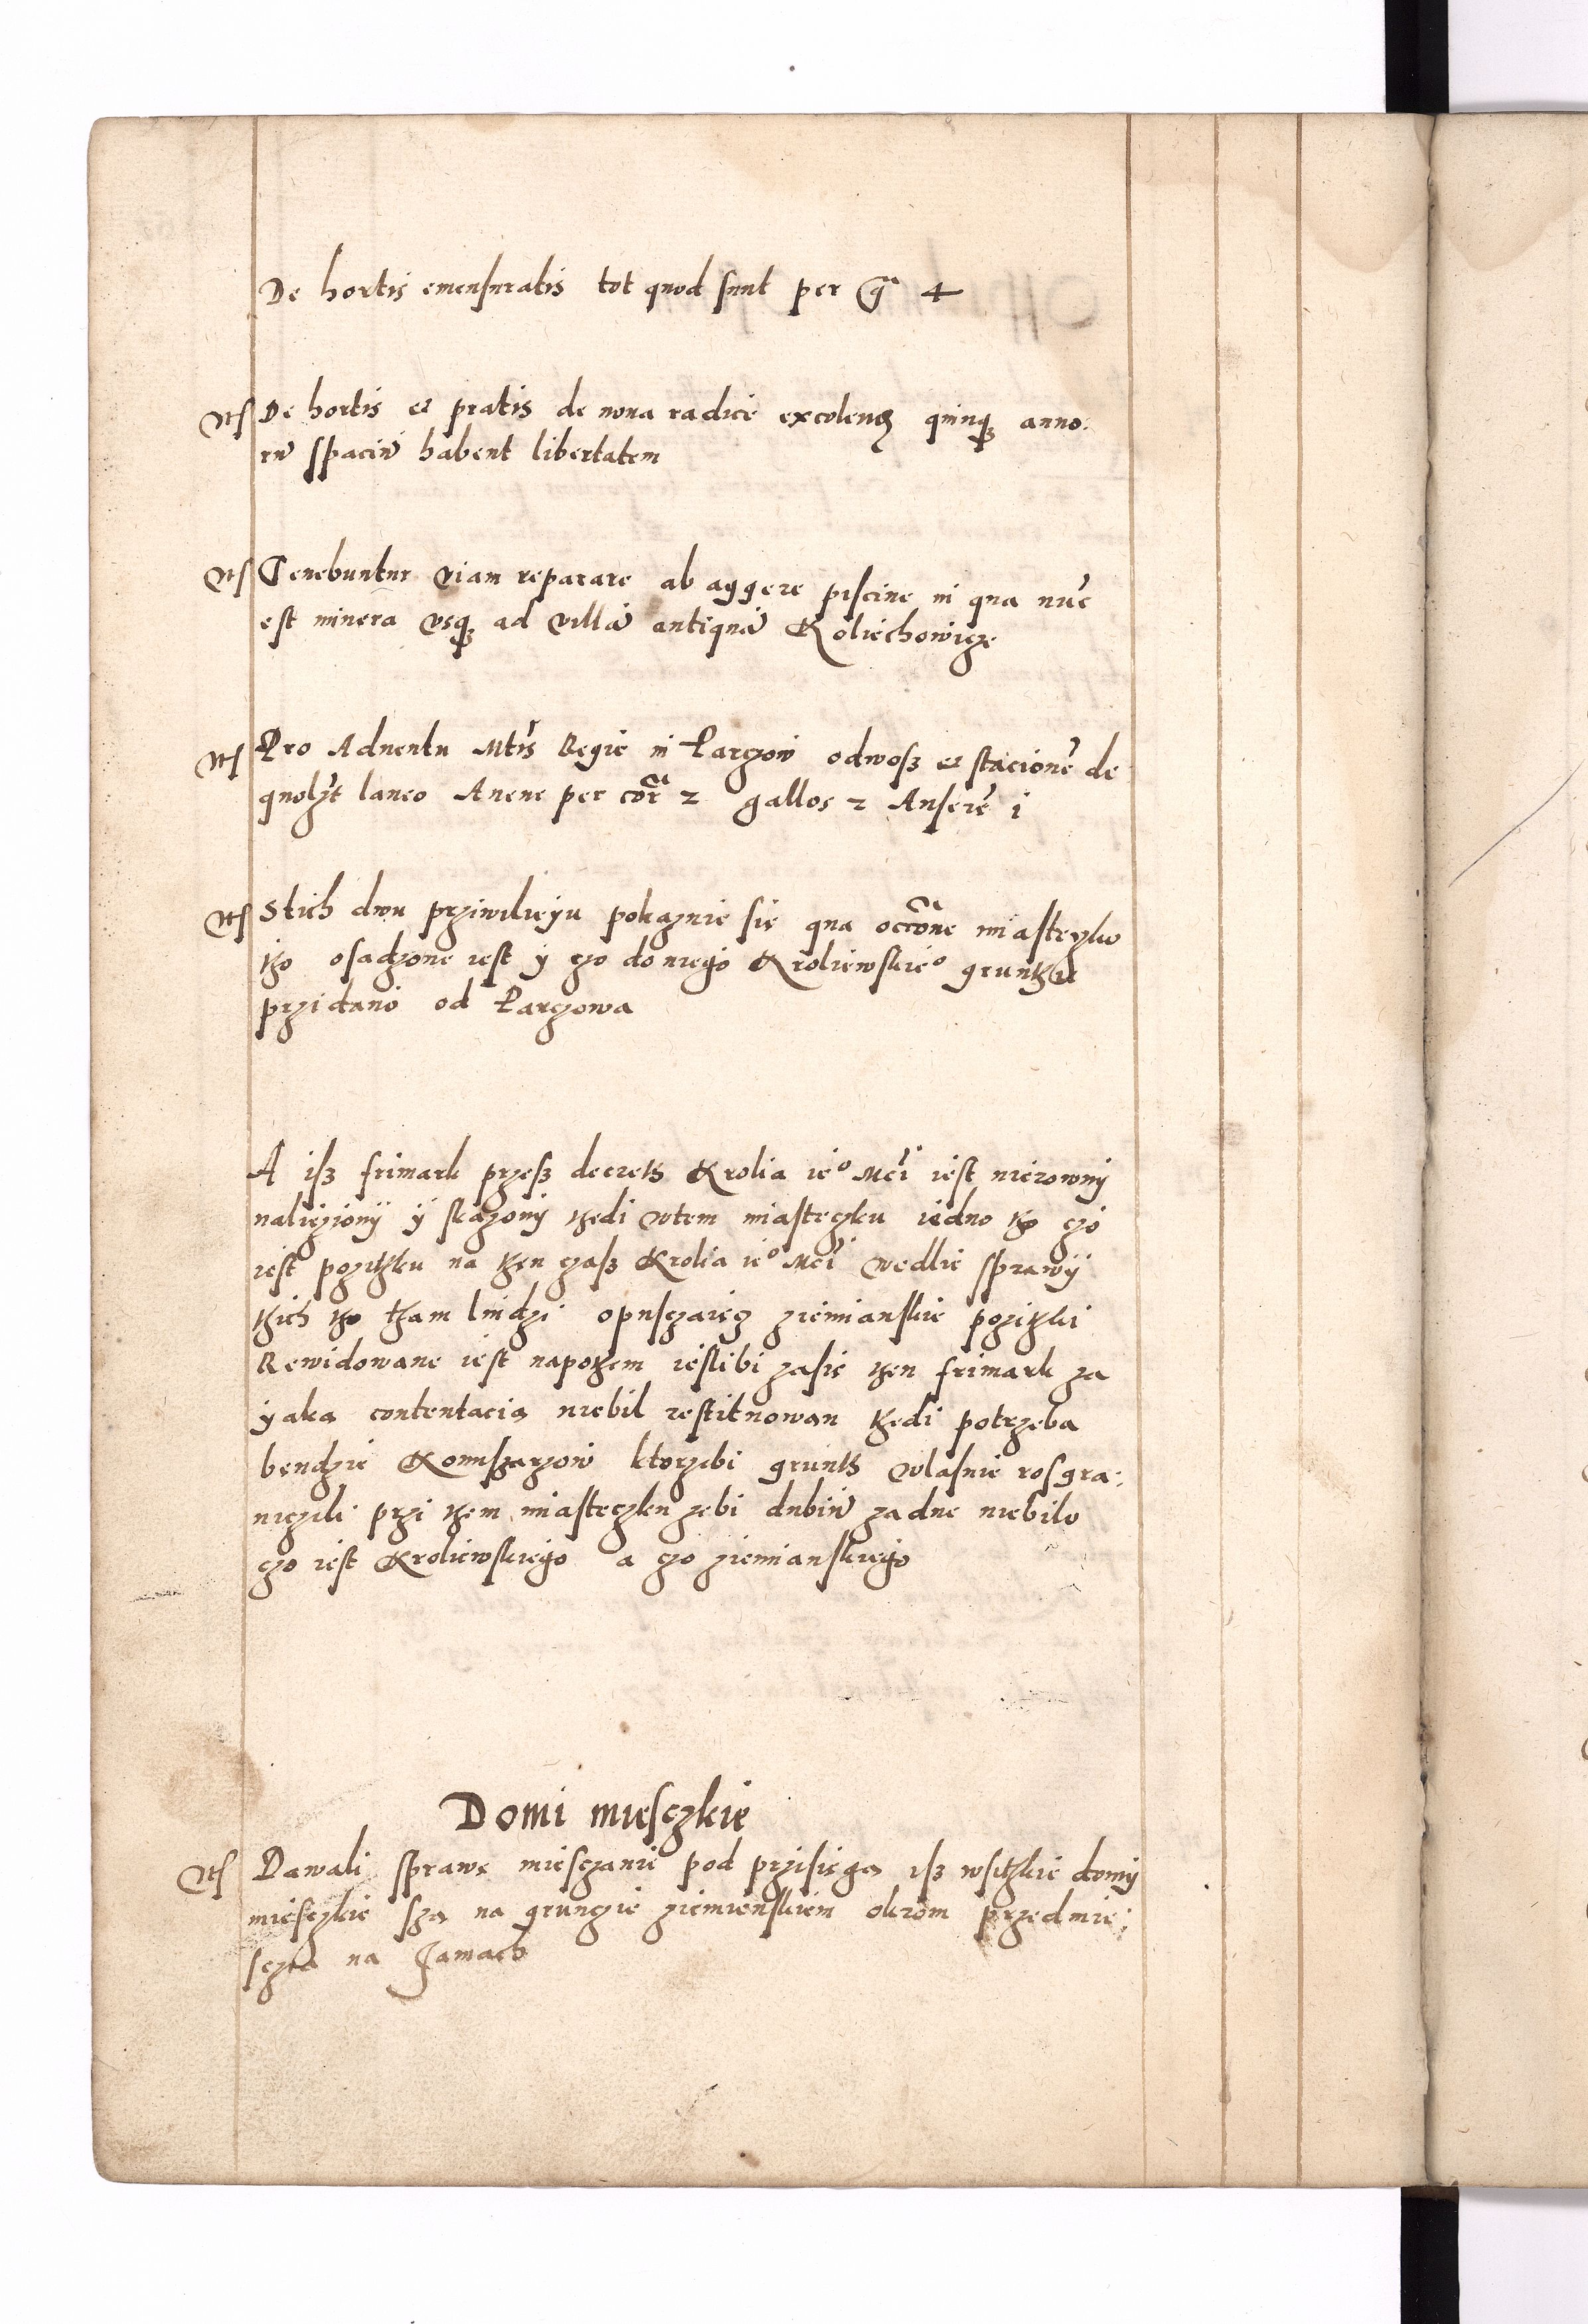 De hortis emensuratis tot quod sunt per gͣ 4
Itẽ De hortis et pratis de nova radice excolenđ quinqꝫ anno:
rũ spaciũ habent libertatem
Itẽ Tenebuntur viam reparare ab aggere piscine in qua nũc
est minera usqꝫ ad villã antiquã Koliechowicze
Itẽ Pro Adventu Mtĩs Regie in Parczow odwosz et stacionẽ de
quolžt laneo Avene per cõr 2 gallos 2 Anserẽ i
Itẽ Stich dwu prziwilieyu pokazuie sie qua occõne miasteczko
tho osadzone iest y czo do niego Kroliewskieº grunthu
przidano od Parczowa
A isz frimark przesz decreth Krolia ieº Mći iest nierowny
nalieziony y skazony thedi wtem miasteczku iedno tho czo
iest pozithku na then czasz Krolia ieº Mći wedlie sprawy
thich tho tham liudzi opusczaiącz ziemianskie pozithki
Rewidowane iest napothem ieslibi zasie then frimark za
yaką contentacią niebil restituowan thedi potrzeba
bendzie Komisarzow ktorzebi grunth wlasnie rosgra:
niczili przi them miasteczku zebi dubiũ zadne niebilo
czo iest Kroliewskiego a czo ziemianskiego
Domi miesczkie
Itẽ Dawali sprawe miesczanie pod przisiegą isz wsithkie domy
miesczkie szą na gruncie ziemienskiem okrom przedmie:
scza na Jamach